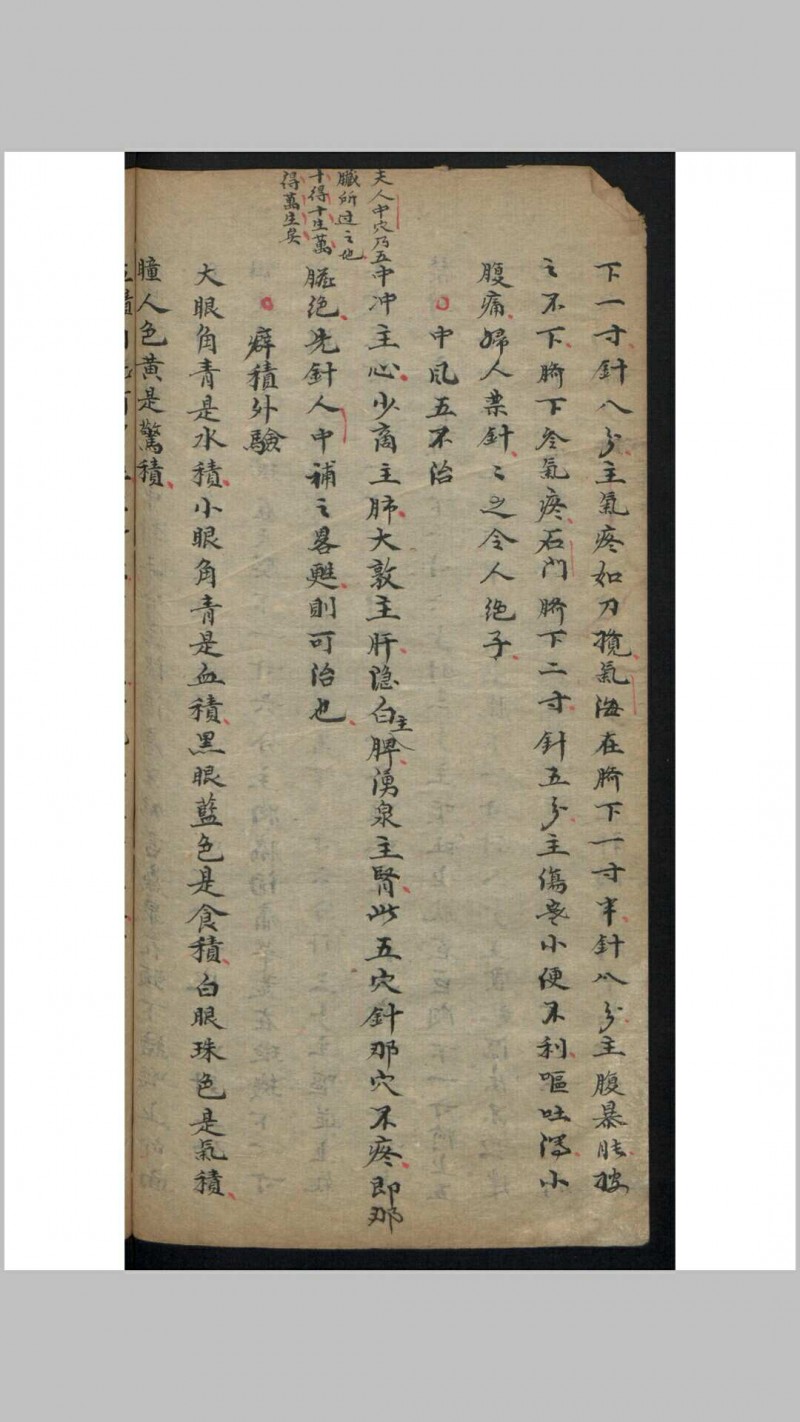 下一寸針八分主氣疼如刀攪氣海在臍下一寸半針八分主腹暴脹按
之不下臍下冬氣疼石門臍下二寸針五分主傷寒小便不利嘔吐瀉小
腹痛婦人禁針〻之令人绝子
中風五不治
夫人中穴乃五
臟所过之也
十得十生萬
得萬生矣
中冲主心少商主肺大敦主肝隐白主脾湧泉主腎此五穴針那穴不疼即那
臟绝先針人中補之畧甦則可治也
癖積外驗
大眼角青是水積小眼角青是血積黑眼藍色是食積白眼珠色是氣積
瞳人色黄是驚積